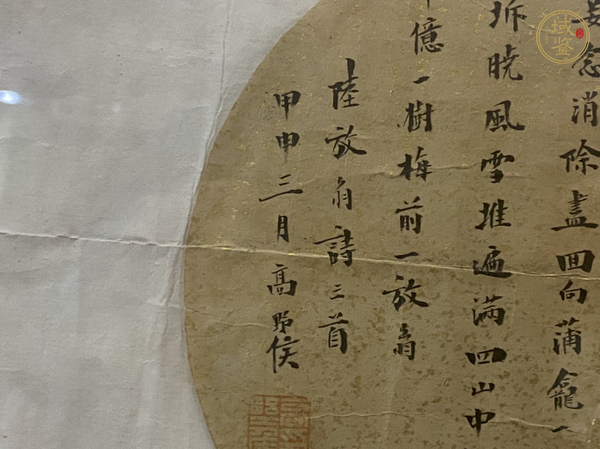 妄念消除盡回向蒲龕一
坼曉風雪堆遍滿四山中
億一樹梅前一放翁
陸放翁詩三首
甲申三月高野侯
域鑒